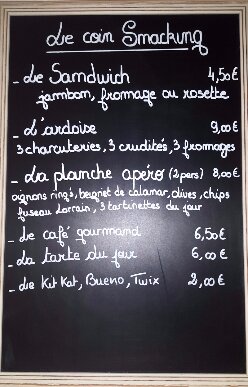 Le coin Smacking
- Le Samdwich 4,50€
jambom, fromage ou rosette
- L'ardoise 9,00€
3 charcuteries, 3 crudités, 3 fromages
- La planche apéro (2 pers) 8,00€
oignons rings, beignet de calamar, olives, chips
fuseau lorrain, 3 tartinettes du jour
- Le café gourmand 6,50€
- La tarte du jour 6,00€
- Le Kit Kat, Bueno, Twix 2,00€